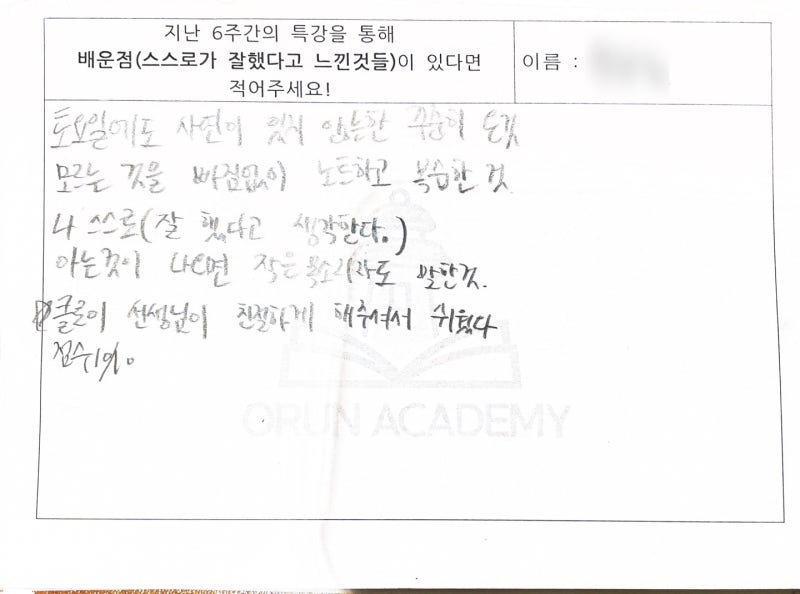 지난 6주간의 특강을 통해
배운점(스스로가 잘했다고 느낀것들)이 있다면
적어주세요!
이름 :
토요일에도 사연이 있지 않는한 꾸준히 온것
모르는 것을 빠짐없이 노트하고 복습한 것
나 스스로(잘 했다고 생각한다.)
아는것이 나오면 작은 목소리라도 말한것.
클로이 선생님이 친절하게 해주셔서 쉬웠다
ORUN ACADEMY